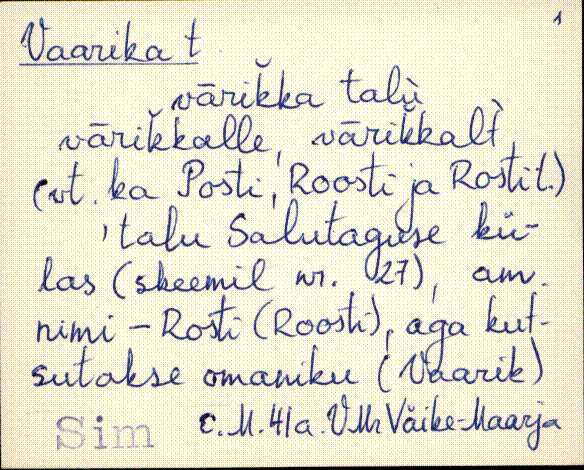 1
Vaarika t.
vāriǩka talù
vāriǩkalle, vāriǩkalt̀
(vt. ka Posti, Roosti ja Rosti t.)
'talu Salutaguse kü-
las (skeemil nr. 27), am.
nimi – Rosti (Roosti), aga kut-
sutakse omaniku (Vaarik)
Sim c. M. 41a. VMr Väike-Maarja